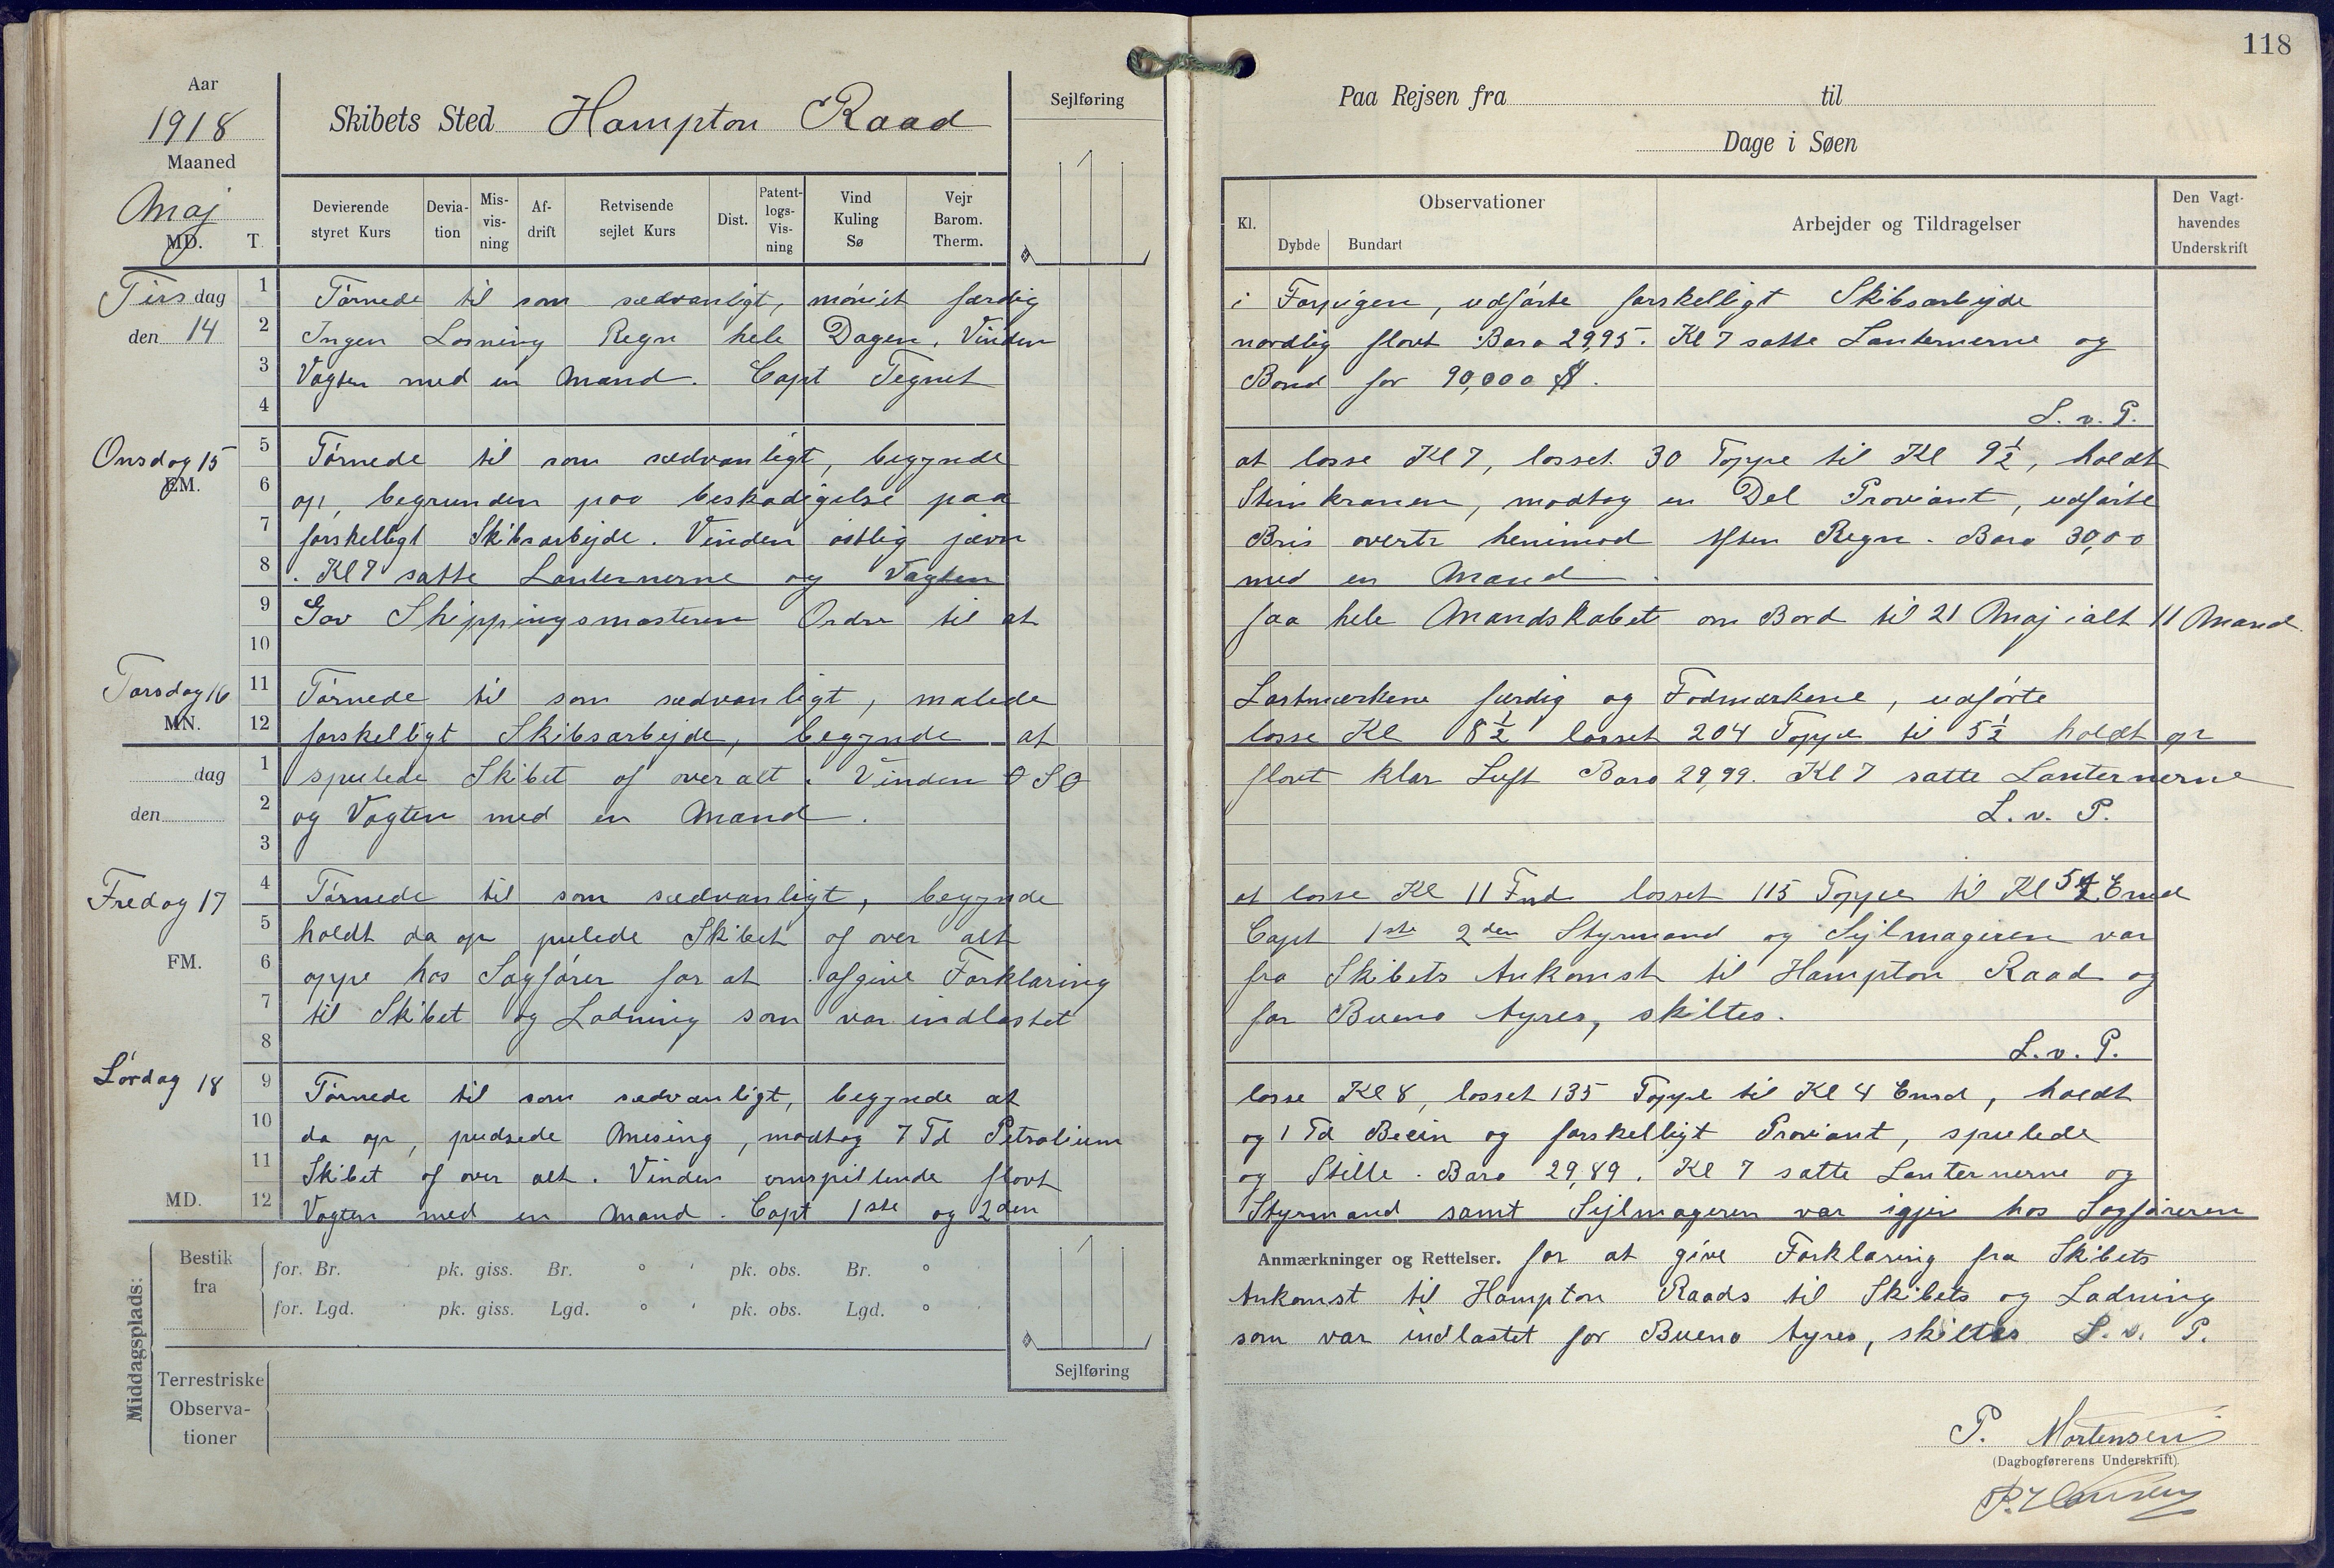 118
Aar
1918
Maaned
Maj
MD.
T.
Skibets Sted Hampton Raad
Sejlføring
Devierende styret Kurs
Devia-tion
Mis-vis-ning
Af-drift
Retvisende sejlet Kurs
Dist.
Patent-logs-Vis-ning
Vind Kuling Sø
Vejr Barom. Therm.
Paa Rejsen fra til
Dage i Søen
Kl.
Observationer
Dybde Bundart
Arbejder og Tildragelser
Den Vagt-havendes Underskrift
Tirsdag
den 14
1 Tørnede til som sædvanligt, møniet færdig i Forpigen, udførte forskelligt Skibsarbejde
2 Ingen Losning Regn hele Dagen, Vinden nordlig flovt Baro 29,95. Kl 7 satte Lanternerne og
3 Vagten med en Mand. Capt Tegnet Bond for 90,000 $.
4 L. v. P.
Onsdag 15
EM.
5 Tørnede til som sædvanligt, begynde at losse Kl 7, losset 30 Toppe til Kl 9½, holdt
6 op, begrunden paa beskadigelse paa Stimkranen, modtog en Del Proviant, udførte
7 forskelligt Skibsarbejde. Vinden østlig jævn Bris overtr henimod Aften Regn. Baro 30,00
8 . Kl 7 satte Lanternerne og Vagten med en Mand.
9 Gav Shippingsmasteren Ordre til at faa hele Mandskabet om Bord til 21 Maj ialt 11 Mand.
10
Torsdag 16
MN.
11 Tørnede til som sædvanligt, malede Lastmærkene færdig og Fodmærkene, udførte
12 forskelligt Skibsarbejde, begynde at losse Kl 8½ losset 204 Toppe til 5½ holdt op
dag
den
1 spulede Skibet af overalt. Vinden OSO flovt klar Luft Baro 29,99. Kl 7 satte Lanternerne
2 og Vagten med en Mand. L. v. P.
3
Fredag 17
FM.
4 Tørnede til som sædvanligt, begynde at losse Kl 11 Fmd losset 115 Toppe til Kl 5½ Emd
5 holdt da op pulede Skibet af over alt Capt 1ste 2den Styrmand og Sejlmageren var
6 oppe hos Sagfører for at afgive Forklaring fra Skibets Ankomst til Hampton Raad og
7 til Skibet og Ladning som var indlastet for Bueno Ayres, skiltes.
8 L. v. P.
Lørdag 18
9 Tørnede til som sædvanligt, begynde at losse Kl 8, losset 135 Toppe til Kl 4 Emd, holdt
10 da op, pudsede Mesing, modtog 7 Td Petrolium og 1 Td Becin og forskelligt Proviant, spulede
11 Skibet af over alt. Vinden omspillende flovt og Stille. Baro 29,89. Kl 7 satte Lanternerne og
MD.
12 Vagten med en Mand. Capt 1ste og 2den Styrmand samt Sejlmageren var igjen hos Sagføreren
Anmærkninger og Rettelser. for at give Forklaring fra Skibets
Ankomst til Hampton Raads til Skibets og Ladning
som var indlastet for Bueno Ayres, skiltes L. v. P.
Middagsplads:
Bestik fra
for. Br. pk. giss. Br. ° ' pk. obs. Br. °
for. Lgd. pk. giss. Lgd. ° ' pk. obs. Lgd. °
Sejlføring
Terrestriske Observa-tioner
P. Mortensen
(Dagbogførerens Underskrift).